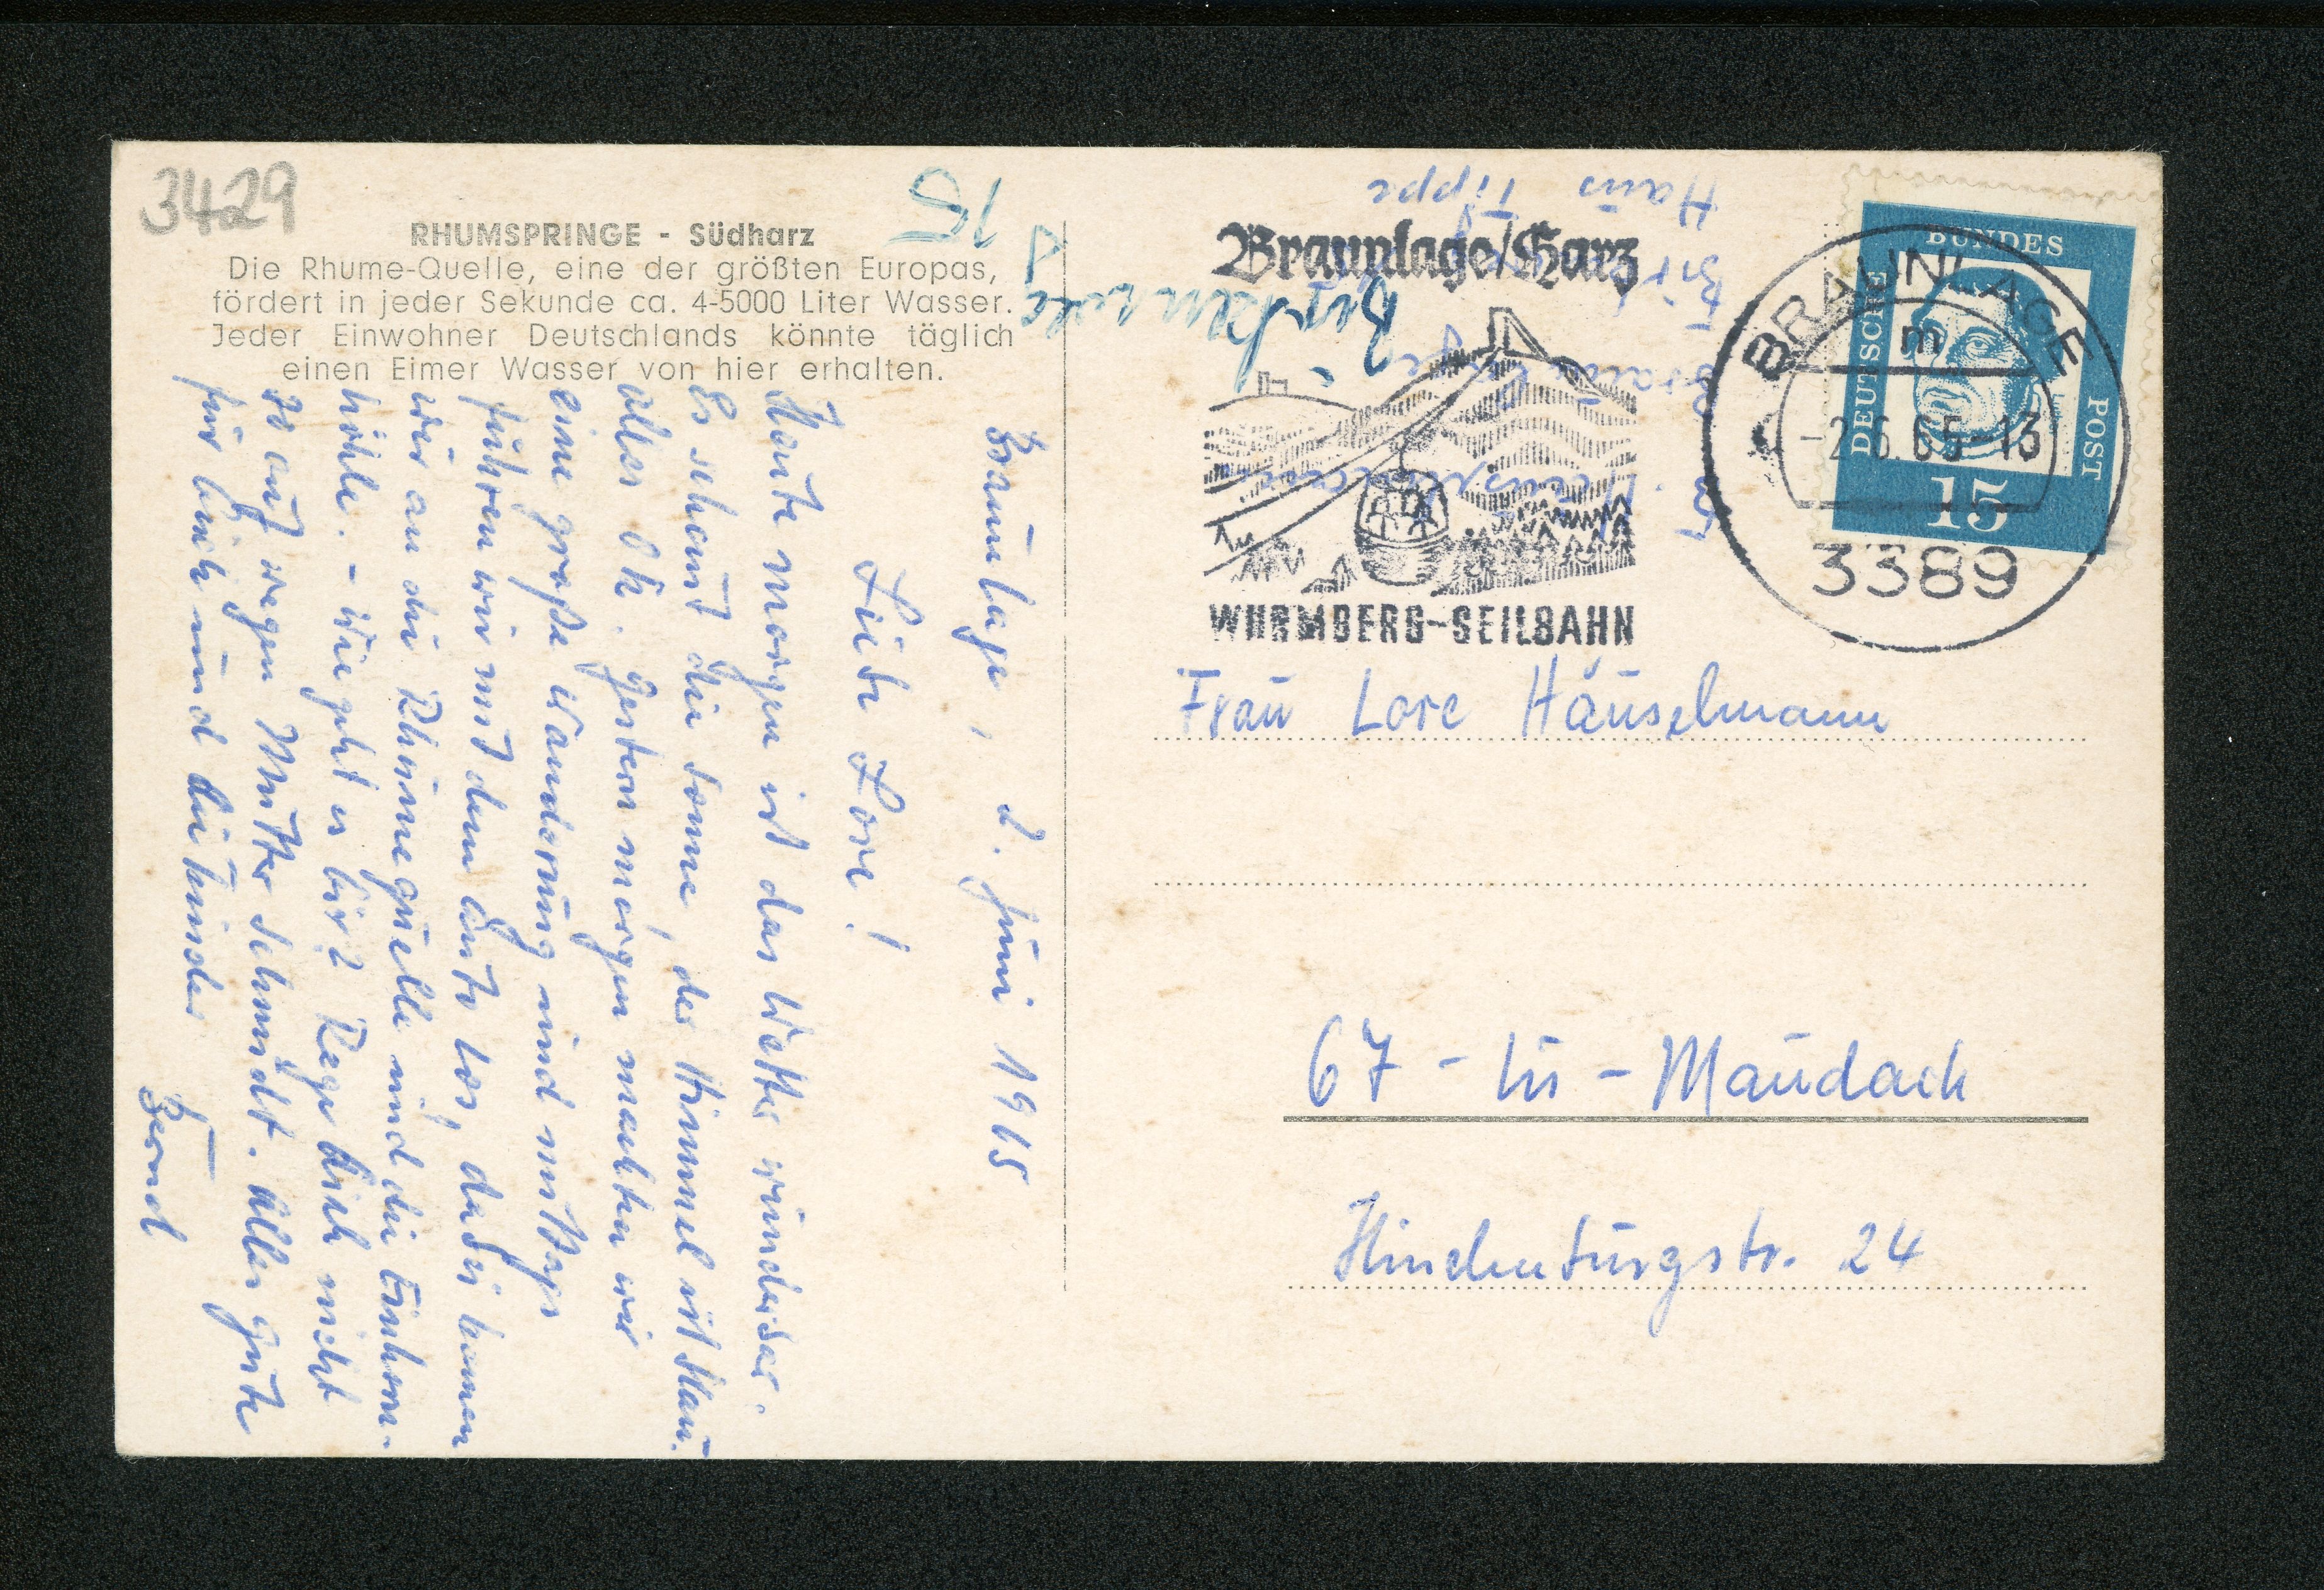 3429
RHUMSPRINGE - Südharz
Die Rhume-Quelle, eine der größten Europas,
fördert in jeder Sekunde ca. 4-5000 Liter Wasser.
Jeder Einwohner Deutschlands könnte täglich
einen Eimer Wasser von hier erhalten.
Braunlage, 2. Juni 1965
Liebe Lore!
Heute morgen ist das Wetter wunderbar.
Es scheint die Sonne, der Himmel ist blau.
alles ok. Gestern morgen machten wir
eine große Wanderung und mittags
fuhren wir mit dem Auto los, dabei kamen
wir an die Rhumequelle und die Einhorn-
höhle. - Wie geht es Dir? Rege Dich nicht
so auf wegen Mutter Schmidt. Alles Gute
für Dich und die Kinder
Bernd
15
Haus Tippe
Braunlage/Harz
WURMBERG-SEILBAHN
DEUTSCHE BUNDESPOST
15
BRAUNLAGE
m
-2.6.65-13
3389
Frau Lore Häuselmann
67 - Lu - Maudach
Hindenburgstr. 24